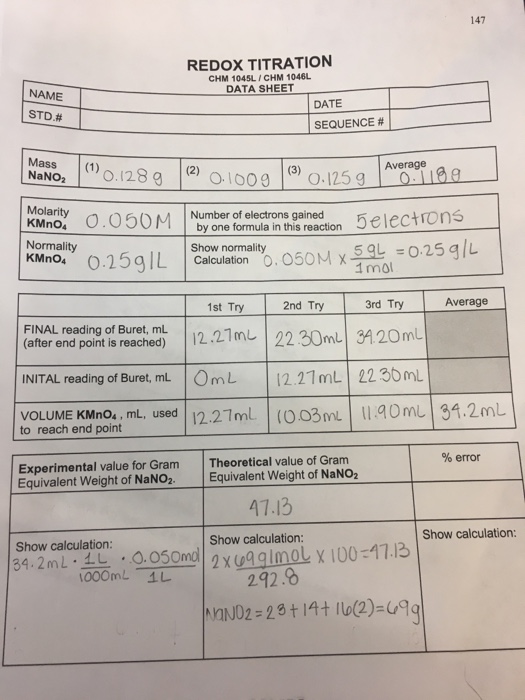 147
REDOX TITRATION
CHM 1045L / CHM 1046L
DATA SHEET
NAME
DATE
STD.#
SEQUENCE #
Mass NaNO₂ (1) 0.128 g (2) 0.100g (3) 0.125 g Average 0.118g
Molarity KMnO₄ 0.050M Number of electrons gained by one formula in this reaction 5 electrons
Normality KMnO₄ 0.25g/L Show normality Calculation 0.050M x 5 gL / 1mol = 0.25 g/L
1st Try 2nd Try 3rd Try Average
FINAL reading of Buret, mL (after end point is reached) 12.27mL 22.30mL 34.20mL
INITAL reading of Buret, mL 0mL 12.27mL 22.30mL
VOLUME KMnO₄ , mL, used to reach end point 12.27mL 10.03mL 11.90mL 34.2mL
Experimental value for Gram Equivalent Weight of NaNO₂.
Theoretical value of Gram Equivalent Weight of NaNO₂
% error
47.13
Show calculation:
34.2mL · 1L / 1000mL · 0.050mol / 1L
Show calculation:
2 x 69g/mol / 292.8 x 100 = 47.13
NaNO2 = 23 + 14 + 16(2) = 69g
Show calculation: